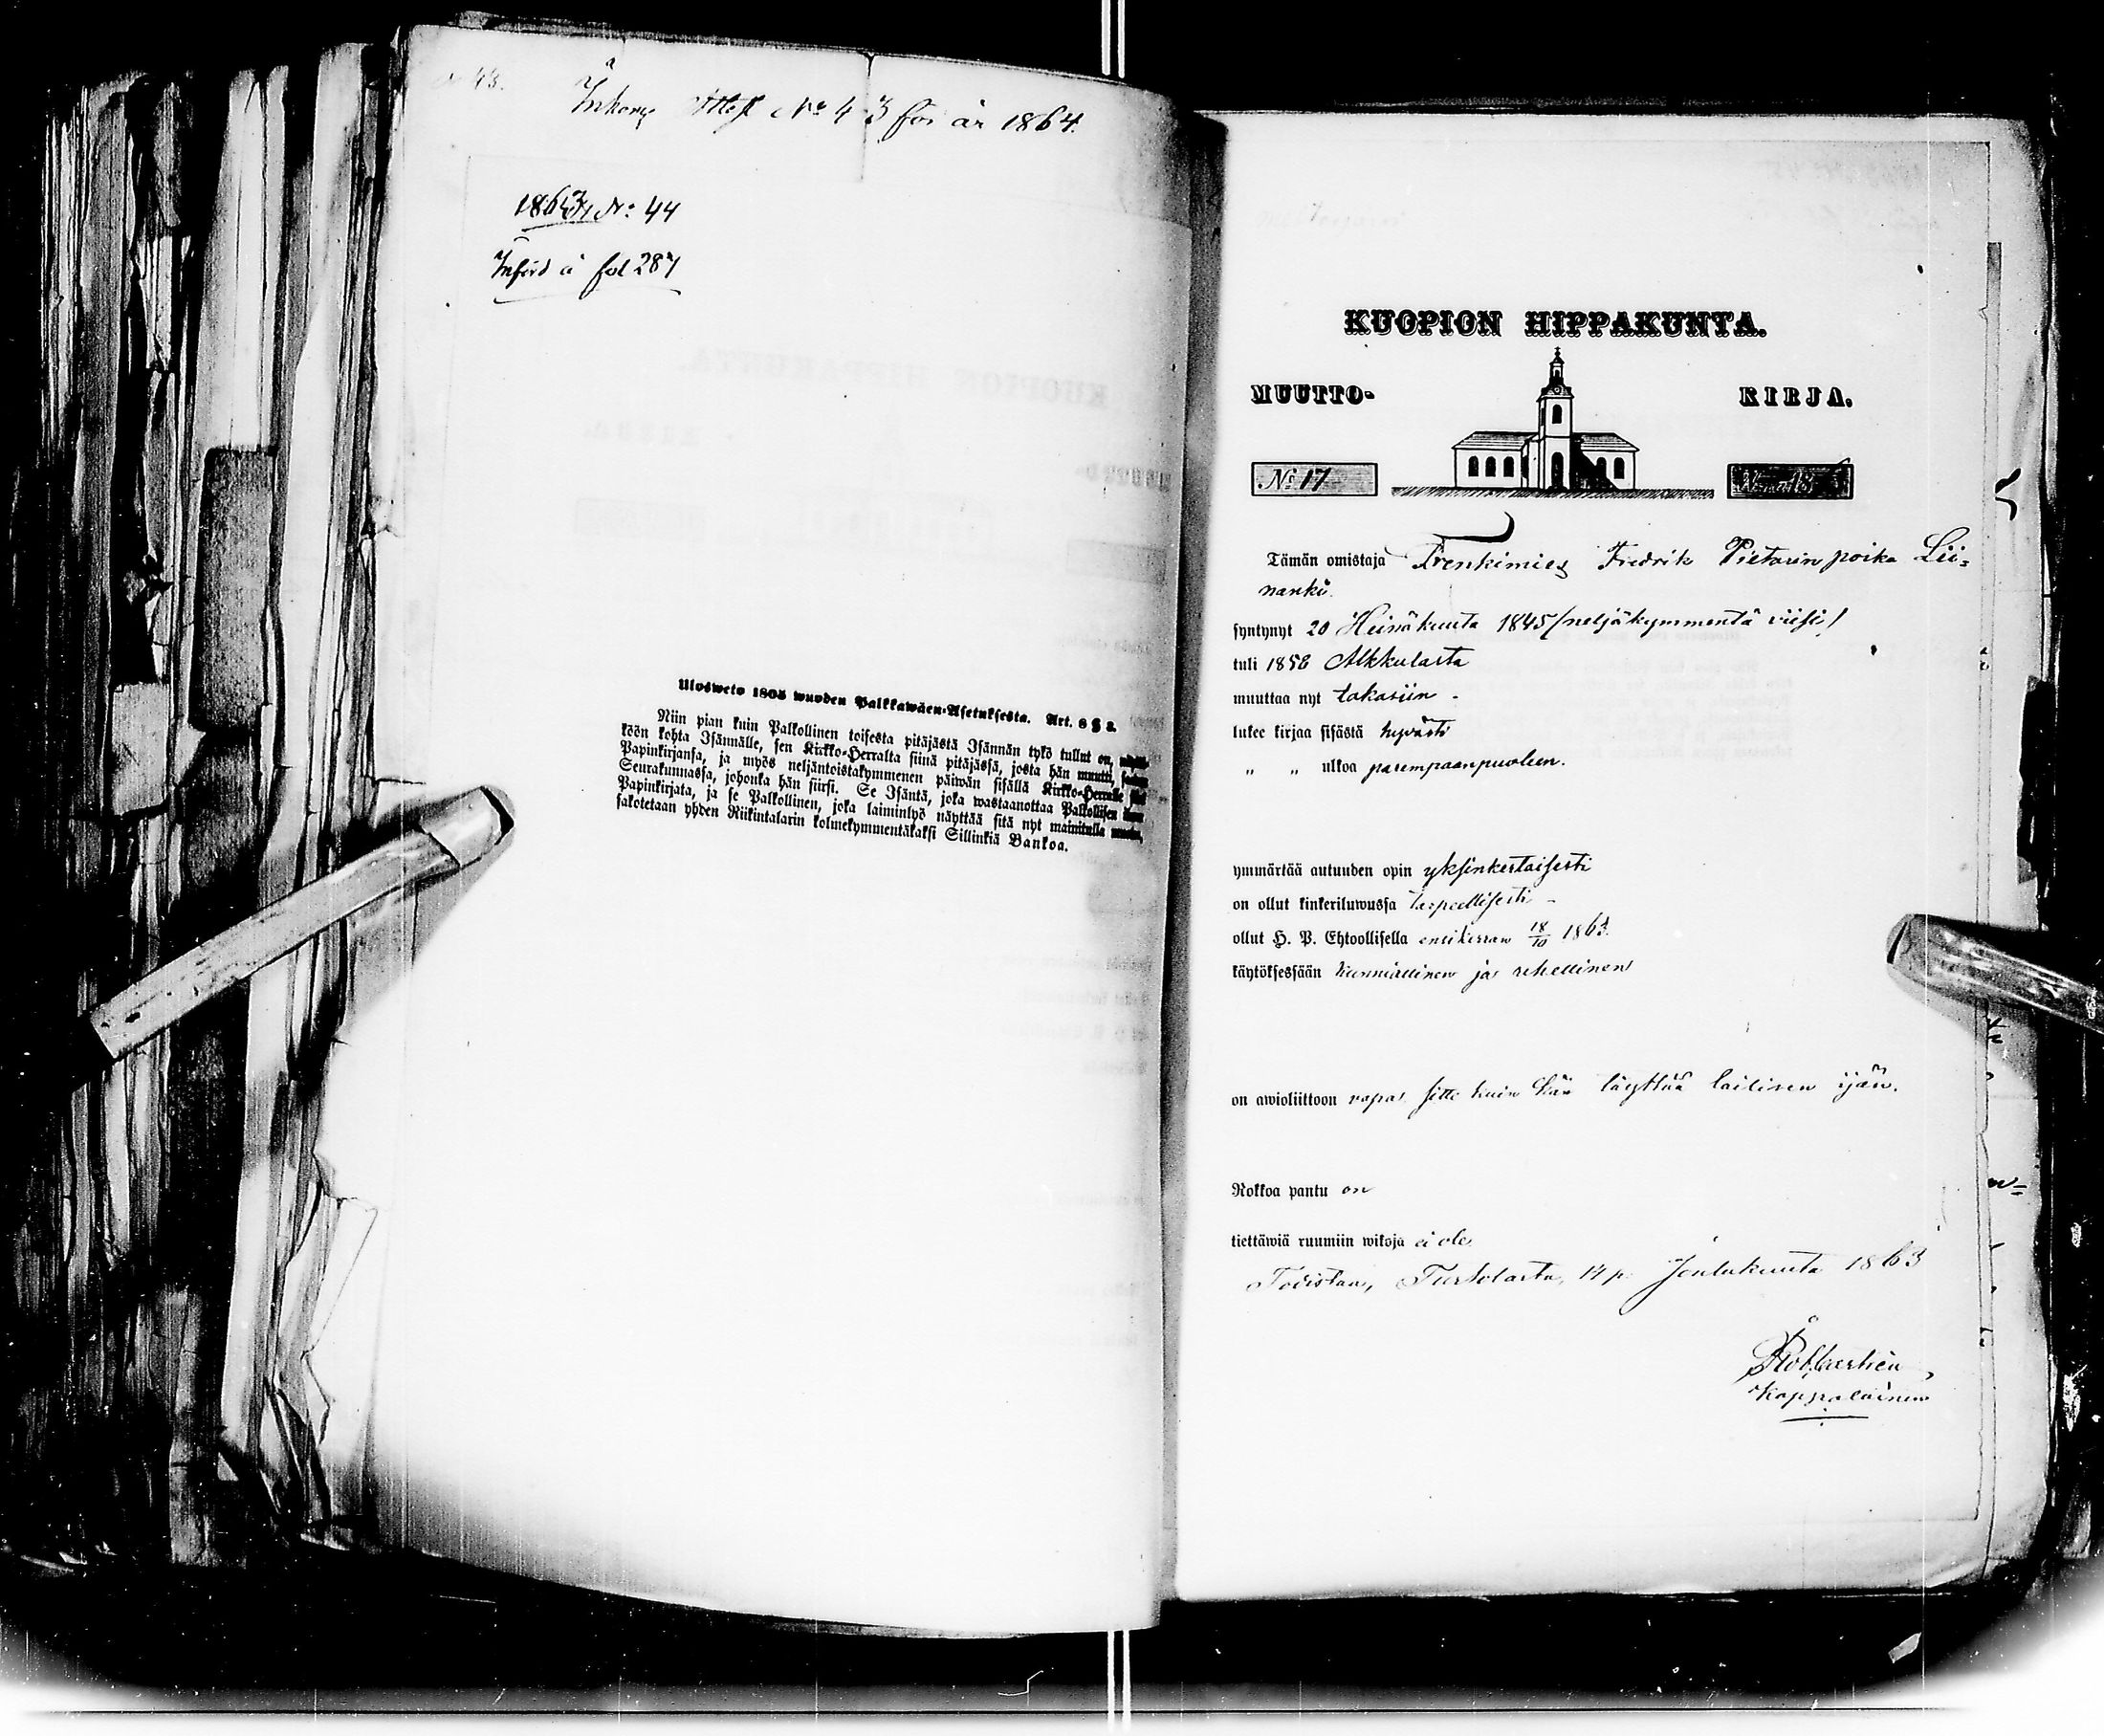 Inkomne Attest No 43 för år 1864.
1863 No: 44
Införd å fol 287
Uloswetv 1805 wuoden Palkkawäen-Asetuksesta. Art. 8 § 3.
Niin pian kuin Palkollinen toisesta pitäjästä Isännän tykö tullut on,
köön kohta Isännälle, sen Kirkko-Herralta siinä pitäjässä, josta hän muutti,
Papinkirjansa, ja myös neljäntoistakymmenen päiwän sisällä Kirkko-Herralle
Seurakunnassa, johonka hän siirsi. Se Isäntä, joka wastaanottaa Palkollisen
Papinkirjata, ja se Palkollinen, joka laiminlyö näyttää sitä nyt mainitulla
sakotetaan yhden Riikintalarin kolmekymmentäkaksi Sillinkiä Bankoa.
KUOPION HIPPAKUNTA.
MUUTTO- KIRJA.
No 17
Tämän omistaja Trenkimies Fredrik Pietarin poika Lii-
nanki
syntynyt 20 Heinäkuuta 1845 /neljäkymmentä viisi/
tuli 1858 Alkkulasta
muuttaa nyt takasiin -
lukee kirjaa sisästä hyvästi
" " ulkoa parempaanpuoleen.
ymmärtää autuuden opin yksinkertaisesti
on ollut kinkeriluwussa tarpeellisesti -
ollut H. P. Ehtoollisella ensikerran 18/10 1863.
käytöksessään kunniallinen ja rehellinen
on awioliittoon vapas sitte kuin hän täyttää laillisen ijän.
Rokkoa pantu on
tiettäwiä ruumiin wikoja ei ole
Todistaa, Turtolasta, 14 p. Joulukuuta 1863
Kappalainen